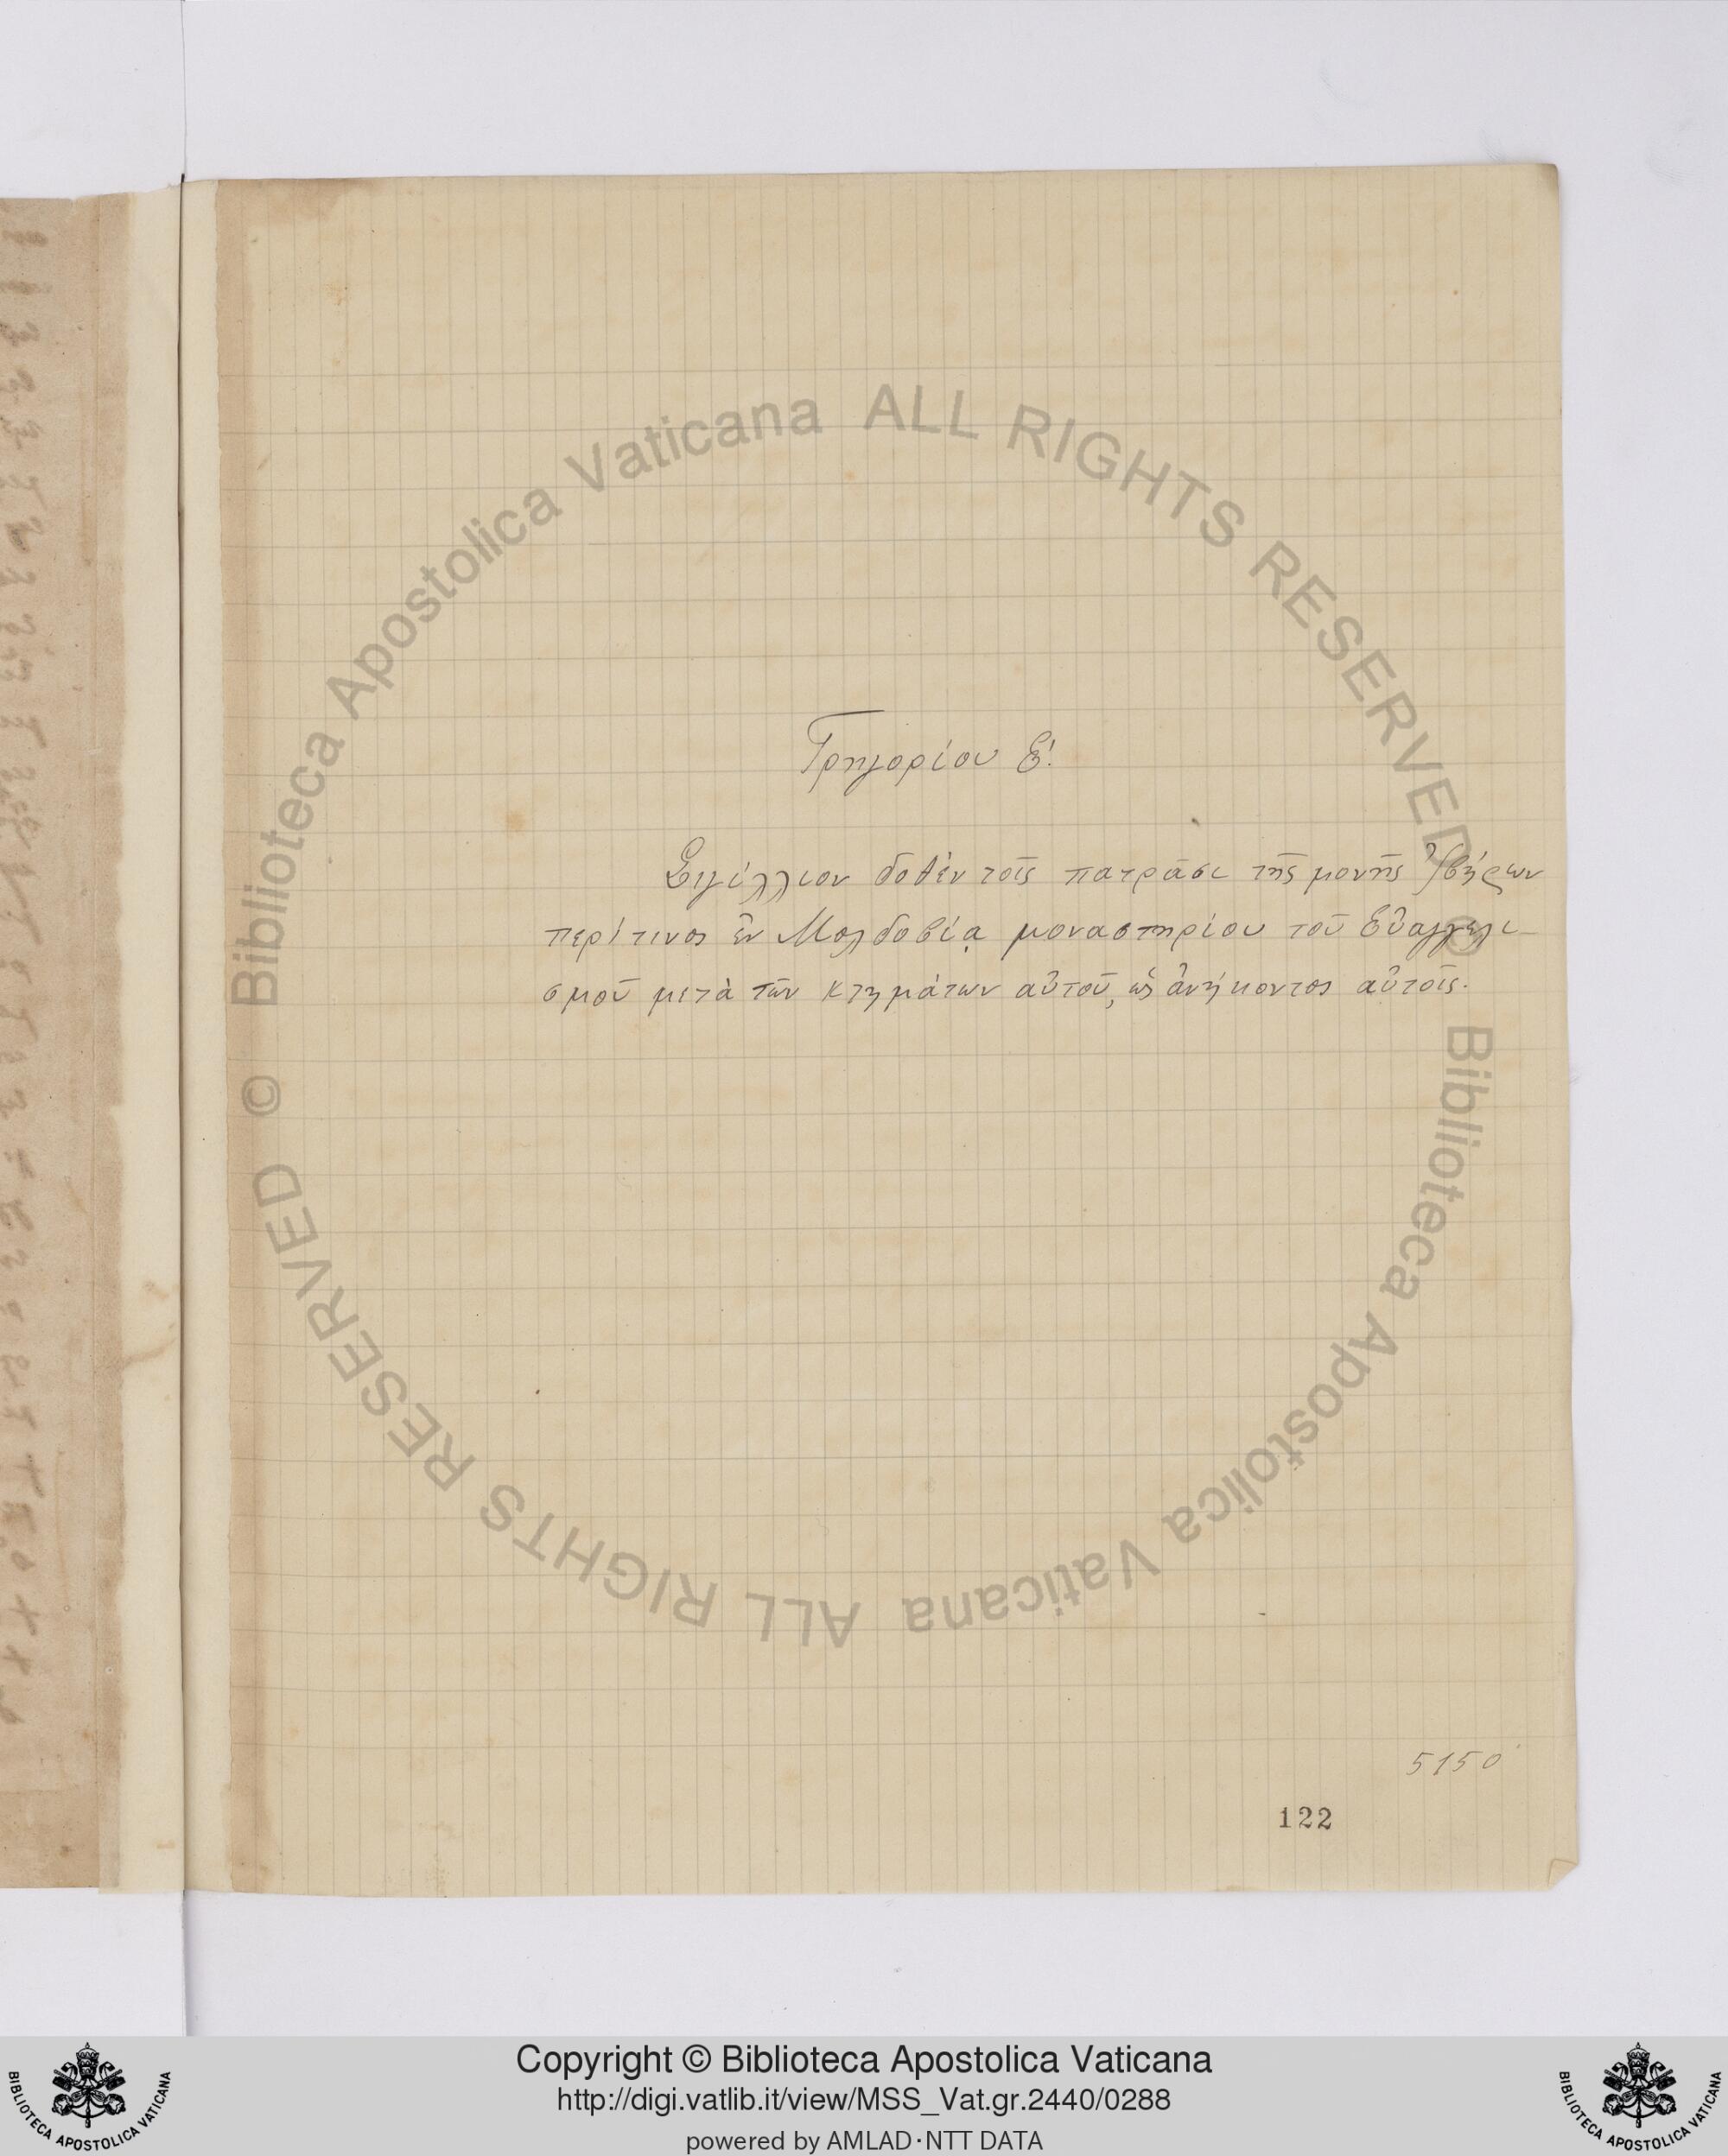 Γρηγορίου Ε΄.
Σιγίλλιον δοθὲν τοῖς πατρᾶσι τῆς μονῆς Ἰβήρων
περί τινος ἐν Μολδοβίᾳ μοναστηρίου τοῦ Εὐαγγελι-
σμοῦ μετὰ τῶν κτημάτων αὐτοῦ, ὡς ἀνήκοντος αὐτοῖς.
5150
122
© Biblioteca Apostolica Vaticana ALL RIGHTS RESERVED
© Biblioteca Apostolica Vaticana ALL RIGHTS RESERVED
Copyright © Biblioteca Apostolica Vaticana
http://digi.vatlib.it/view/MSS_Vat.gr.2440/0288
powered by AMLAD·NTT DATA
BIBLIOTECA APOSTOLICA VATICANA
BIBLIOTECA APOSTOLICA VATICANA